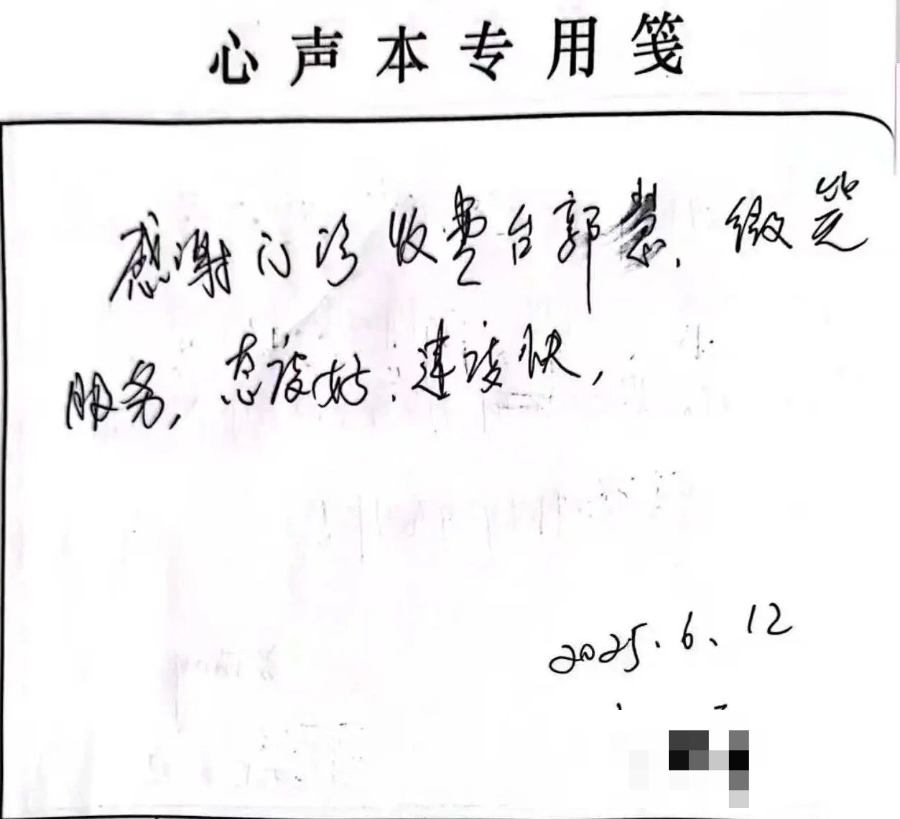 心声本专用笺
感谢门诊收费台郭慧,微笑
服务,态度好,速度快,
2025.6.12